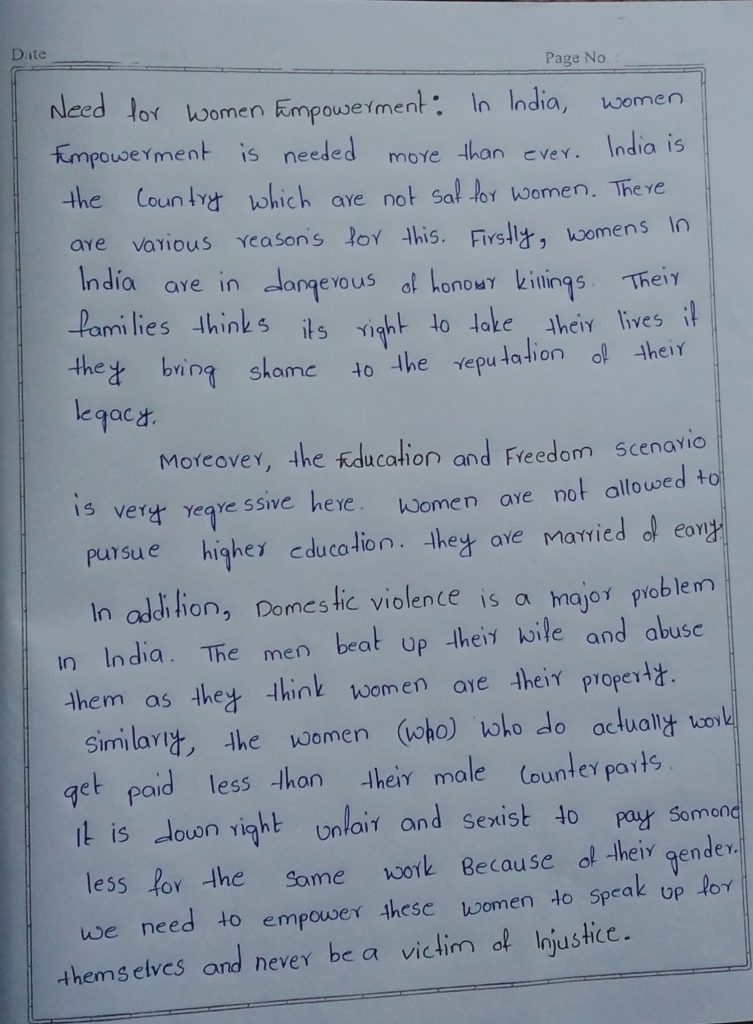 Date
Page No.
Need for Women Empowerment: In India, women
Empowerment is needed more than ever. India is
the Country which are not saf for women. There
are various reason's for this. Firstly, womens In
India are in dangerous of honour killings. Their
families thinks its right to take their lives if
they bring shame to the reputation of their
legacy.
Moreover, the Education and Freedom scenario
is very regressive here. Women are not allowed to
pursue higher education. they are Married of early
In addition, Domestic violence is a major problem
in India. The men beat up their wife and abuse
them as they think women are their property.
similarly, the women (who) who do actually work
get paid less than their male Counterparts.
It is down right unfair and sexist to pay somone
less for the same work Because of their gender.
we need to empower these women to speak up for
themselves and never be a victim of Injustice.